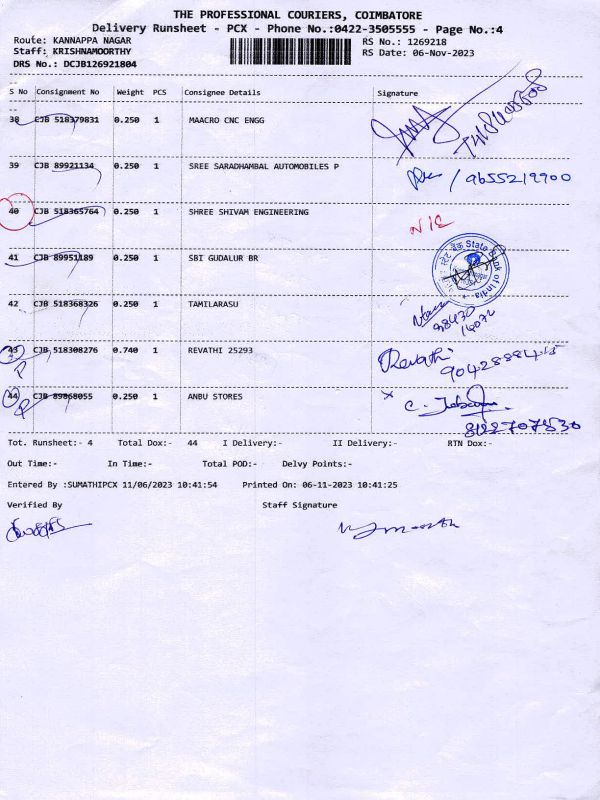 THE PROFESSIONAL COURIERS, COIMBATORE
Delivery Runsheet - PCX - Phone No.:0422-3505555 - Page No.:4
Route: KANNAPPA NAGAR RS No.: 1269218
Staff: KRISHNAMOORTHY RS Date: 06-Nov-2023
DRS No.: DCJB126921804
S No Consignment No Weight PCS Consignee Details Signature
38 CJB 518379831 0.250 1 MAACRO CNC ENGG
39 CJB 89921134 0.250 1 SREE SARADHAMBAL AUTOMOBILES P / 9655219900
40 CJB 518365764 0.250 1 SHREE SHIVAM ENGINEERING
41 CJB 89951189 0.250 1 SBI GUDALUR BR
State Bank of India
42 CJB 518368326 0.250 1 TAMILARASU
43 CJB 518308276 0.740 1 REVATHI 25293 Revathi
P
44 CJB 89868055 0.250 1 ANBU STORES
Tot. Runsheet:- 4 Total Dox:- 44 I Delivery:- II Delivery:- RTN Dox:-
Out Time:- In Time:- Total POD:- Delvy Points:-
Entered By :SUMATHIPCX 11/06/2023 10:41:54 Printed On: 06-11-2023 10:41:25
Verified By Staff Signature